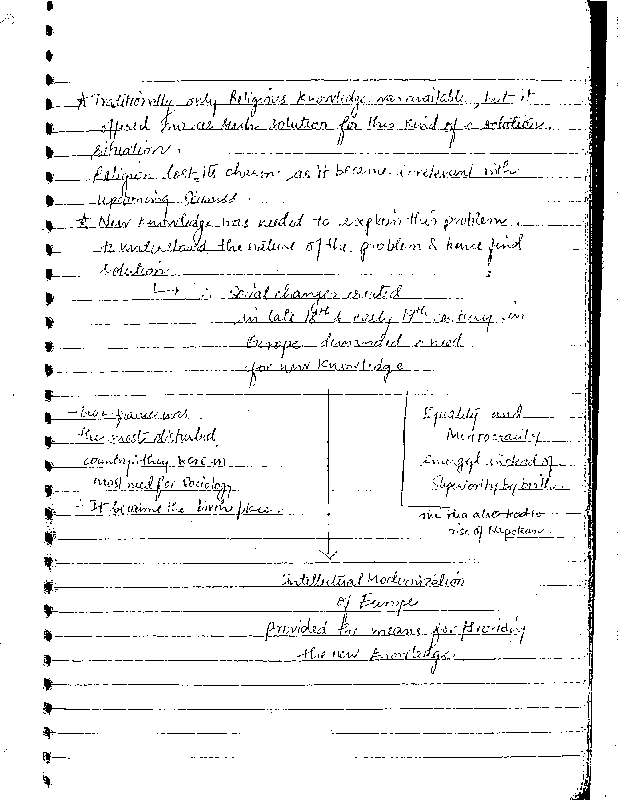 * Traditionally only Religious knowledge was available, but it
offered solution for this kind of a solution
situation.
Religion lost its charm as it became irrelevant with
upcoming
* New knowledge was needed to explain this problem.
to understand the nature of the problem & hence find
solution
∴ Social changes created
in late 18th & early 19th century in
Europe demanded a need
for new knowledge
the most disturbed
country they were in
most need for Sociology
∴ It became the birth place.
Equality and
Meritocracity
emerged instead of
Superiority by birth.
idea also led to
rise of Napolean
Intellectual Modernization
of Europe
Provided the means for Providing
the new knowledge.